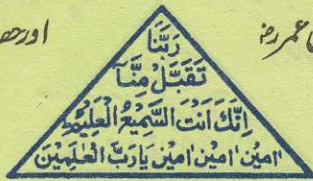 عمر رضؓ
اور حضر
رَبَّنَا
تَقَبَّلْ مِنَّا
اِنَّكَ اَنْتَ السَّمِيْعُ الْعَلِيْمُ
اٰمِيْن اٰمِيْن اٰمِيْن يَا رَبَّ الْعٰلَمِيْنَ